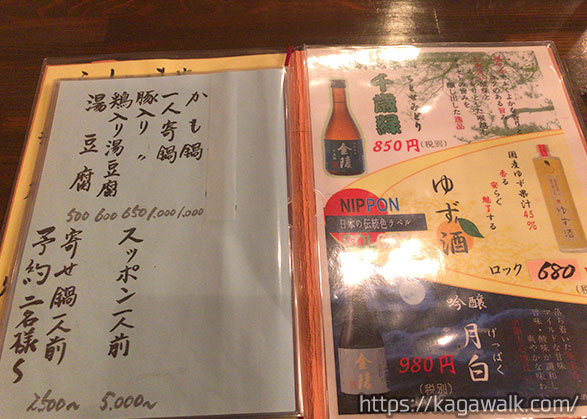 かも鍋
一人寄鍋
豚入り〃
鶏入り湯豆腐
湯豆腐
500 600 650 1,000 1,000
スッポン一人前
5,000〜
寄せ鍋一人前
予約二名様〜
2,500〜
千歳緑
ちとせみどり
醸し出した逸品
金陵
850円(税別)
国産ゆず果汁45%
香る
安らぐ
魅了する
ゆず酒
ゆず酒
NIPPON
日本の伝統色ラベル
ロック 680
(税
吟醸
月白
げっぱく
金陵
980円
(税別)
落ち着いた吟醸香
味、爽やかな味わ
https://kagawalk.com/